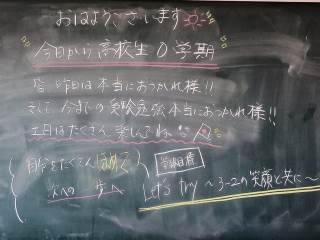 おはようございます
今日から高校生0学期
皆 昨日は本当におつかれ様!!
そして 今までの受験勉強本当におつかれ様!!
土日はたくさん楽しんでね
自分をたくさんほめて
次への一歩へ
学級目標
Let's try ～3-2の笑顔と共に～